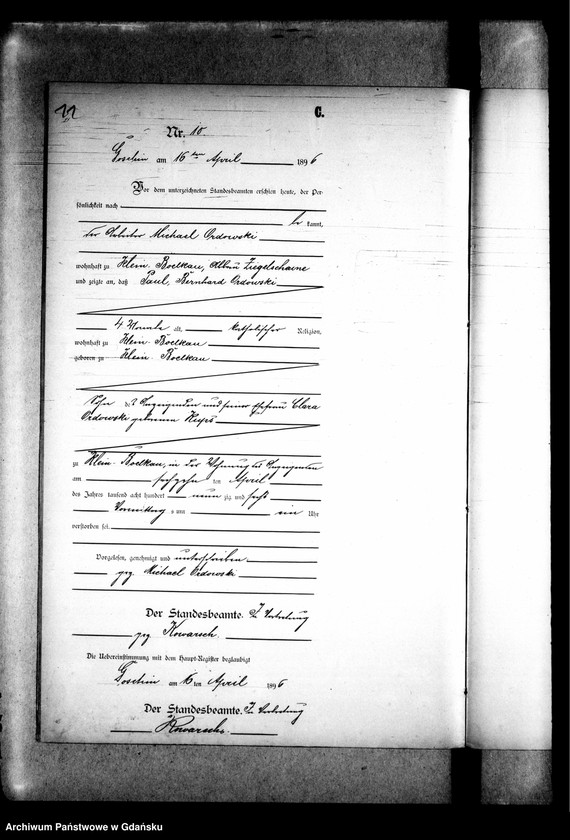 11
C.
Nr. 10
Goschin am 16ten April 1896
Vor dem unterzeichneten Standesbeamten erschien heute, der Per-
sönlichkeit nach
be kannt,
der Arbeiter Michael Ordowski
wohnhaft zu Klein Boelkau, Abbau Ziegelscheune
und zeigte an, daß Paul, Bernhard Ordowski
4 Monate alt, katholischer Religion,
wohnhaft zu Klein Boelkau
geboren zu Klein Boelkau
Sohn des Anzeigenden und seiner Ehefrau Clara
Ordowski geborenen
zu Klein-Boelkau, in der Wohnung des Anzeigenden
am sechzehn ten April
des Jahres tausend acht hundert neun zig und sechs
Vormittags um ein Uhr
verstorben sei.
Vorgelesen, genehmigt und unterschrieben
gez. Michael Ordowski
Der Standesbeamte. In Vertretung
gez. Kowarsch.
Die Uebereinstimmung mit dem Haupt-Register beglaubigt
Goschin am 16ten April 1896
Der Standesbeamte. In Vertretung
Kowarsch.
Archiwum Państwowe w Gdańsku